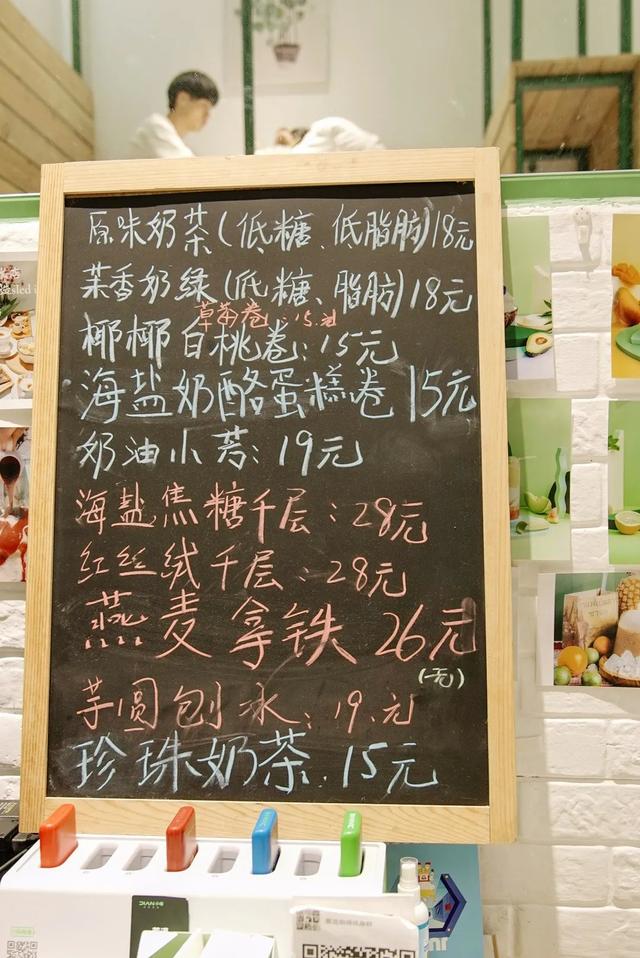 原味奶茶(低糖、低脂肪)18元
茉香奶绿(低糖、脂肪)18元
草莓卷:15元
椰椰白桃卷:15元
海盐奶酪蛋糕卷 15元
奶油小芳:19元
海盐焦糖千层:28元
红丝绒千层:28元
燕麦拿铁 26元
(无)
芋圆刨冰:19.元
珍珠奶茶.15元
DIAN小电